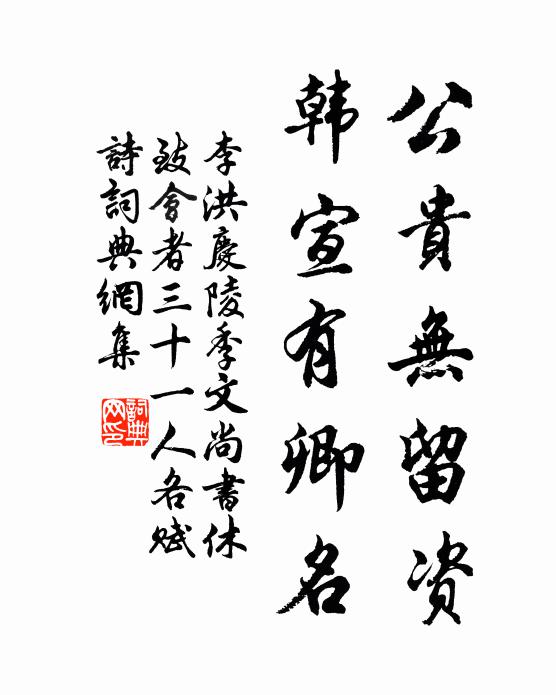 公貴無留资
韩宣有卿名
李洪慶陵季文尚書休
致會者三十一人各赋
詩詞典網集
詞典
网印